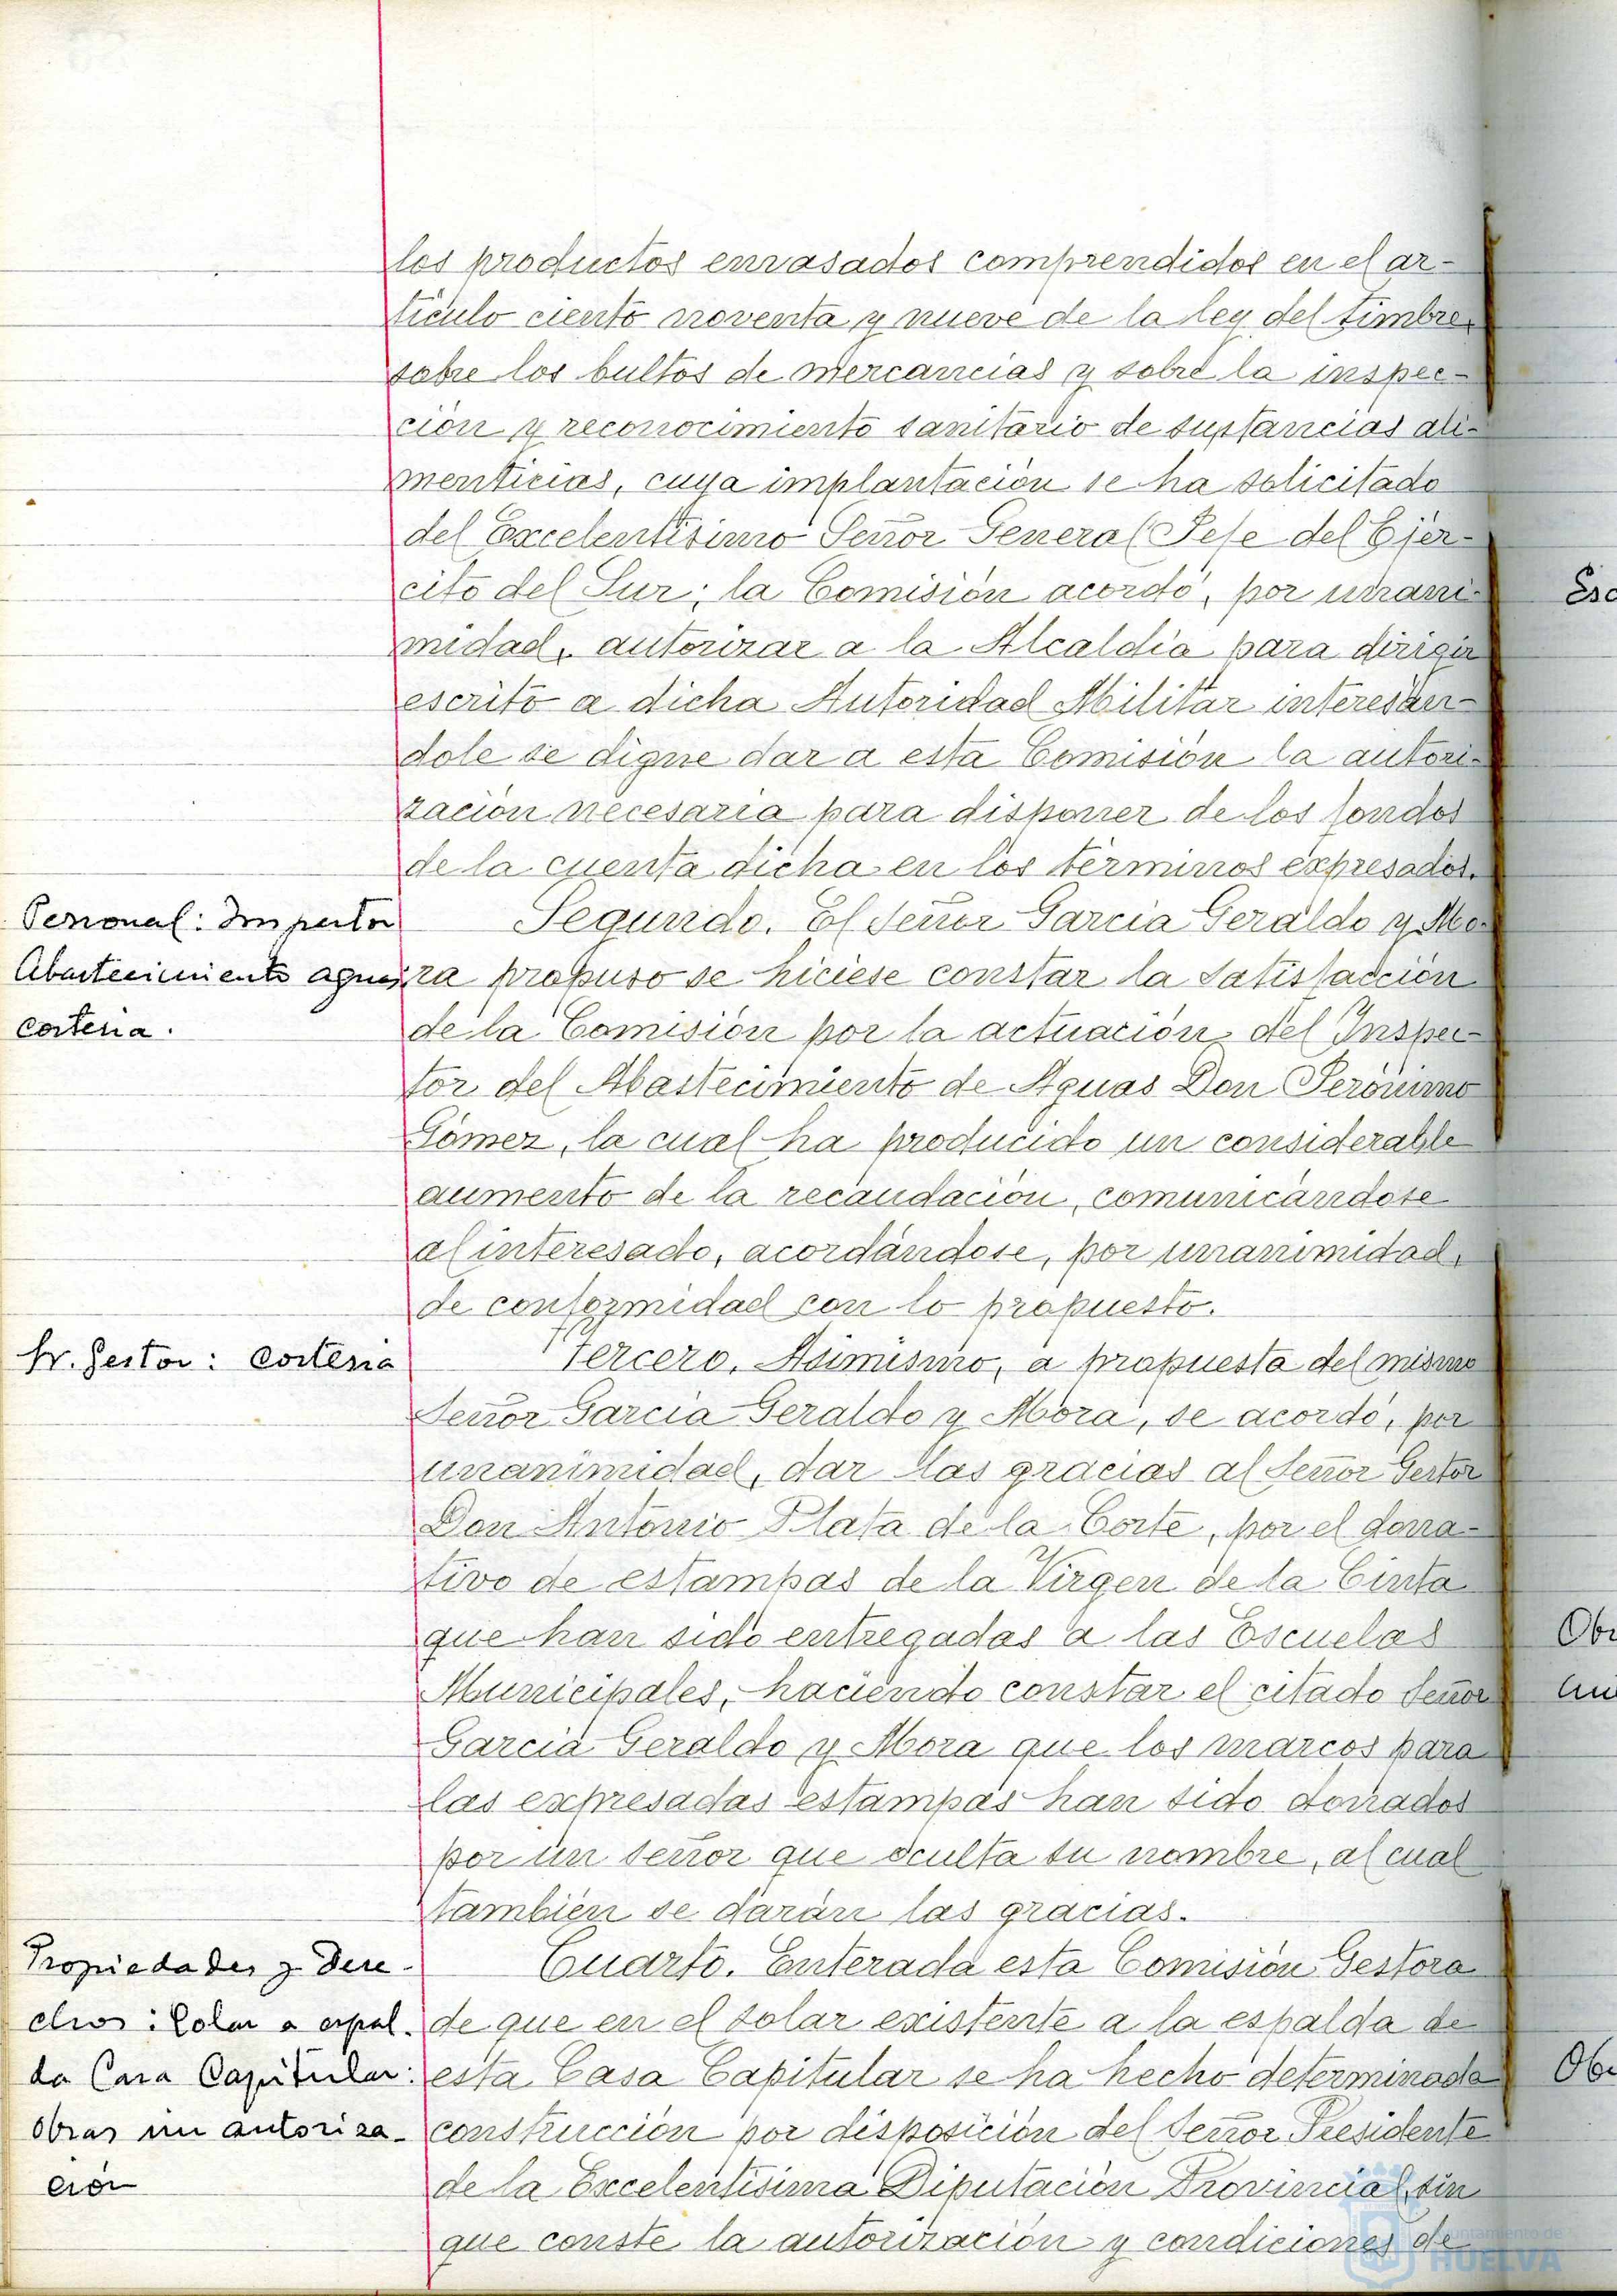 los productos envasados comprendidos en el ar-
tículo ciento noventa y nueve de la ley del timbre,
sobre los bultos de mercancías y sobre la inspec-
ción y reconocimiento sanitario de sustancias ali-
menticias, cuya implantación se ha solicitado
del Excelentísimo Señor General Jefe del Ejér-
cito del Sur; la Comisión acordó, por unani-
midad, autorizar a la Alcaldía para dirigir
escrito a dicha Autoridad Militar interesán-
dole se digne dar a esta Comisión la autori-
zación necesaria para disponer de los fondos
de la cuenta dicha en los términos expresados.
Personal: Inspector
Abastecimiento aguas:
cortesia.
Segundo. El Señor García Geraldo y Mo-
ra propuso se hiciese constar la satisfacción
de la Comisión por la actuación del Inspec-
tor del Abastecimiento de Aguas Don Jerónimo
Gómez, la cual ha producido un considerable
aumento de la recaudación, comunicándose
al interesado, acordándose, por unanimidad,
de conformidad con lo propuesto.
Sr. Gestor: cortesia
Tercero. Asimismo, a propuesta del mismo
Señor García Geraldo y Mora, se acordó, por
unanimidad, dar las gracias al Señor Gestor
Don Antonio Plata de la Corte, por el dona-
tivo de estampas de la Virgen de la Cinta
que han sido entregadas a las Escuelas
Municipales, haciendo constar el citado Señor
García Geraldo y Mora que los marcos para
las expresadas estampas han sido donados
por un señor que oculta su nombre, al cual
también se darán las gracias.
Propiedades y Dere-
chos: Solar a espal-
da Casa Capitular:
obras sin autoriza-
ción
Cuarto. Enterada esta Comisión Gestora
de que en el solar existente a la espalda de
esta Casa Capitular se ha hecho determinada
construcción por disposición del Señor Presidente
de la Excelentísima Diputación Provincial, sin
que conste la autorización y condiciones de
Esc
Obr
Obr
Ayuntamiento de
HUELVA